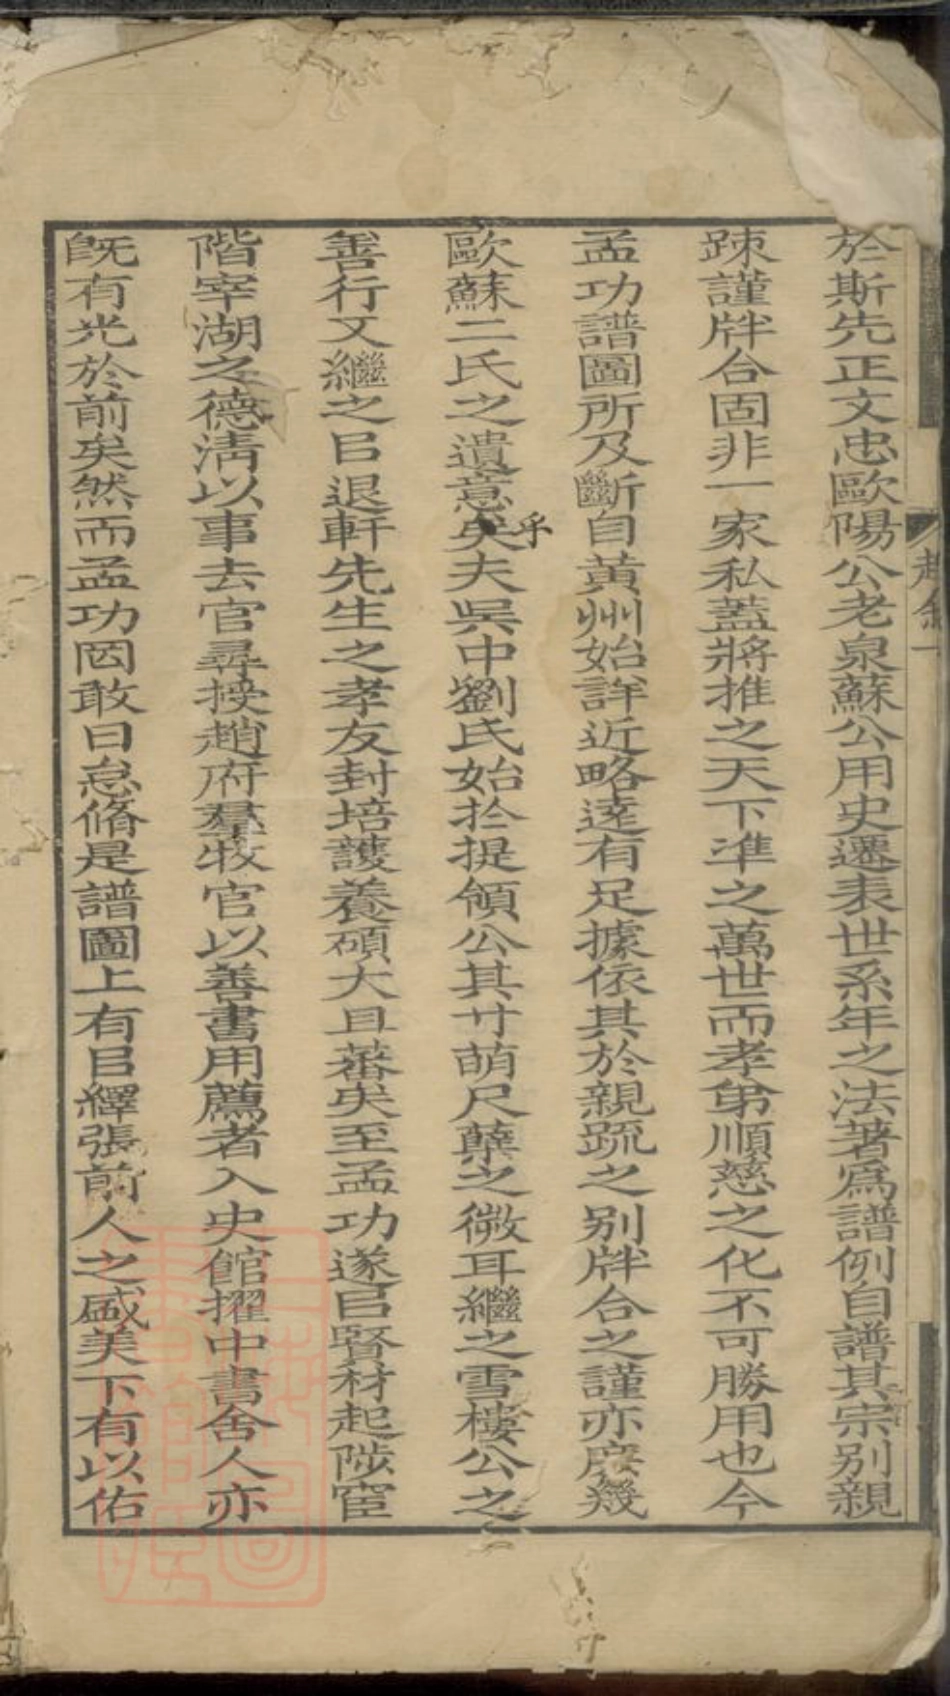 於斯先正文忠歐陽公老泉蘇公用史遷表世系年之法著爲譜例自譜其宗别親
踈謹牉合固非一家私蓋將推之天下準之萬世而孝弟順慈之化不可勝用也今
孟功譜圖所及斷自黄州始詳近略遠有足據依其於親䟽之别牉合之謹亦庶幾
歐蘇二氏之遺意矣乎夫吳中劉氏始扵提領公其寸萌尺蘖之微耳繼之雪樓公之
善行又繼之㠯退軒先生之孝友封培護養碩大且蕃矣至孟功遂㠯賢材起陟宦
階宰湖之德淸以事去官尋授趙府羣牧官以善書用薦者入史館擢中書舍人亦
旣有光於前矣然而孟功罔敢曰怠脩是譜圖上有㠯繹張前人之盛美下有以佑